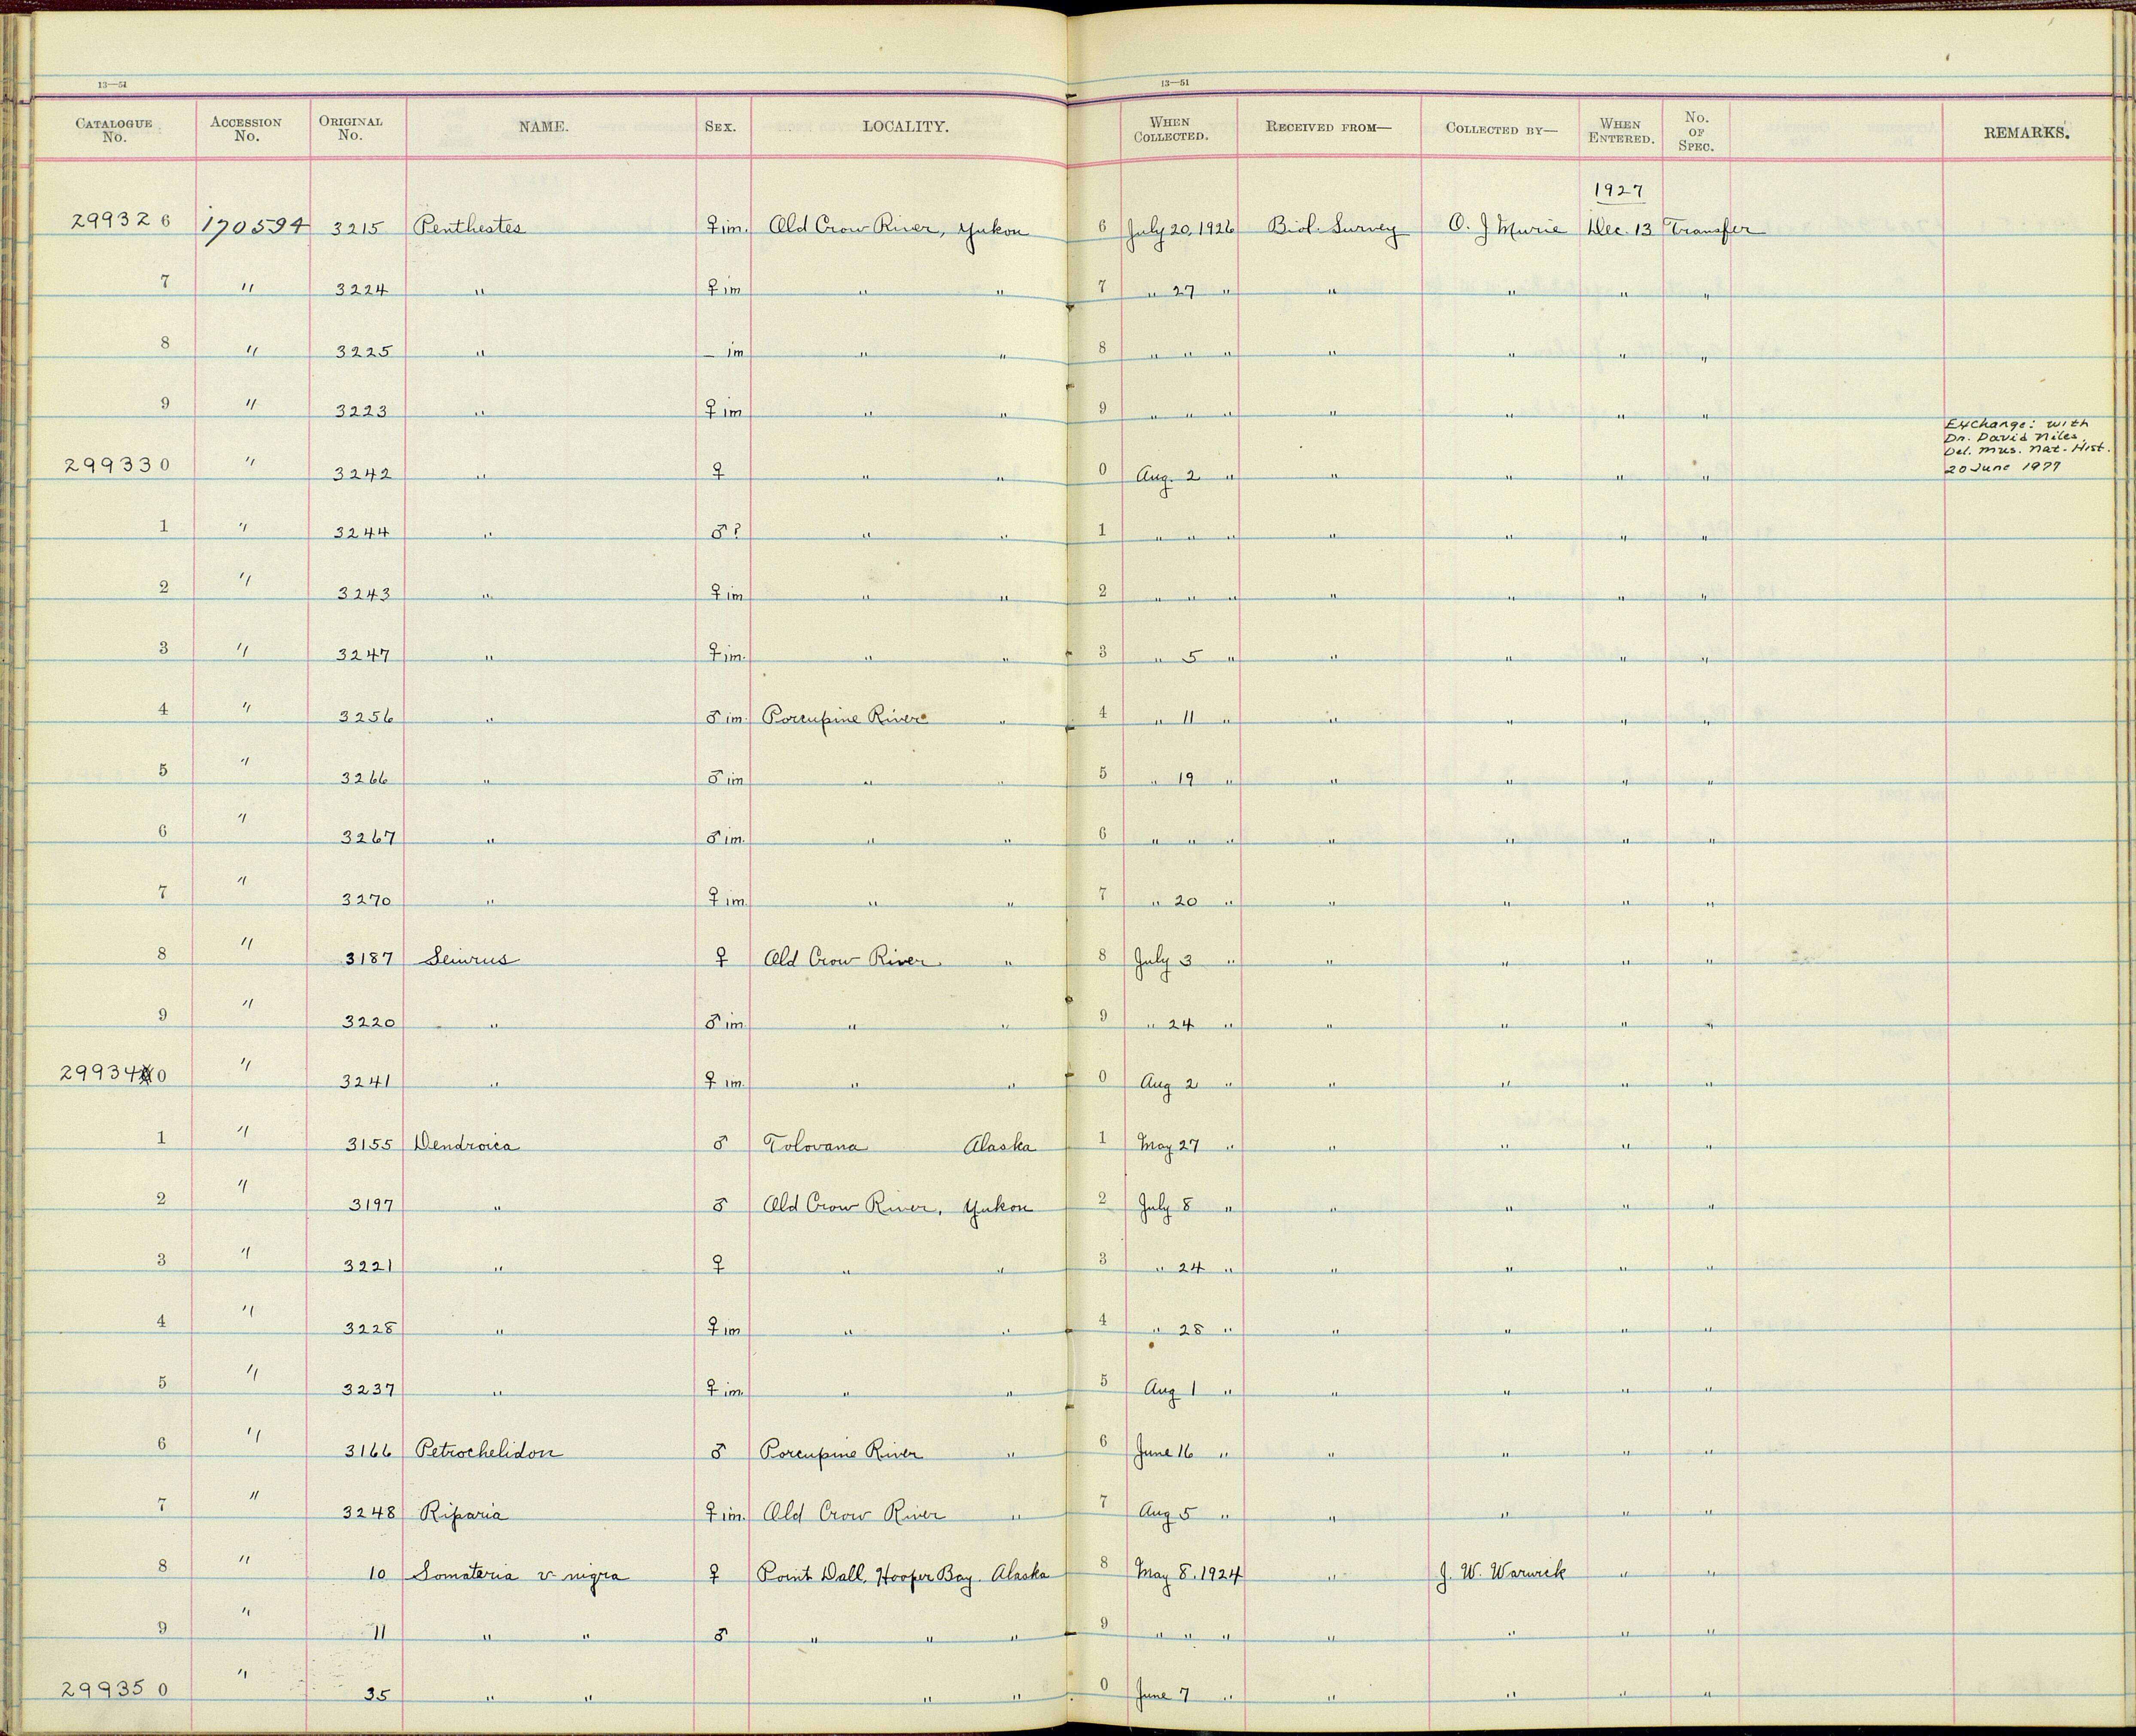 13—51 13—51
CATALOGUE No. ACCESSION No. ORIGINAL No. NAME. SEX. LOCALITY. WHEN COLLECTED. RECEIVED FROM— COLLECTED BY— WHEN ENTERED. No. OF SPEC. REMARKS.
1927
299326 170594 3215 Penthestes ♀ im. Old Crow River, Yukon 6 July 20, 1926 Biol. Survey O. J Murie Dec. 13 Transfer
7 " 3224 " ♀ im " " 7 " 27 " " " " "
8 " 3225 " — im " " 8 " " " " " " "
9 " 3223 " ♀ im " " 9 " " " " " " "
299330 " 3242 " ♀ " " 0 Aug. 2 " " " " " Exchange: with
Dr. David Niles,
Del. Mus. Nat. Hist.
20 June 1977
1 " 3244 " ♂? " " 1 " " " " " " "
2 " 3243 " ♀ im " " 2 " " " " " " "
3 " 3247 " ♀ im. " " 3 " 5 " " " " "
4 " 3256 " ♂ im. Porcupine River " 4 " 11 " " " " "
5 " 3266 " ♂ im " " 5 " 19 " " " " "
6 " 3267 " ♂ im. " " 6 " " " " " " "
7 " 3270 " ♀ im. " " 7 " 20 " " " " "
8 " 3187 Seiurus ♀ Old Crow River " 8 July 3 " " " " "
9 " 3220 " ♂ im. " " 9 " 24 " " " " "
299340 " 3241 " ♀ im. " " 0 Aug 2 " " " " "
1 " 3155 Dendroica ♂ Tolovana Alaska 1 May 27 " " " " "
2 " 3197 " ♂ Old Crow River, Yukon 2 July 8 " " " " "
3 " 3221 " ♀ " " 3 " 24 " " " " "
4 " 3228 " ♀ im " " 4 " 28 " " " " "
5 " 3237 " ♀ im. " " 5 Aug 1 " " " " "
6 " 3166 Petrochelidon ♂ Porcupine River " 6 June 16 " " " " "
7 " 3248 Riparia ♀ im. Old Crow River " 7 Aug 5 " " " " "
8 " 10 Somateria v. nigra ♀ Point Dall, Hooper Bay. Alaska 8 May 8, 1924 " J. W. Warwick " "
9 " 11 " " ♂ " " " 9 " " " " " " "
299350 " 35 " " " " 0 June 7 " " " " "